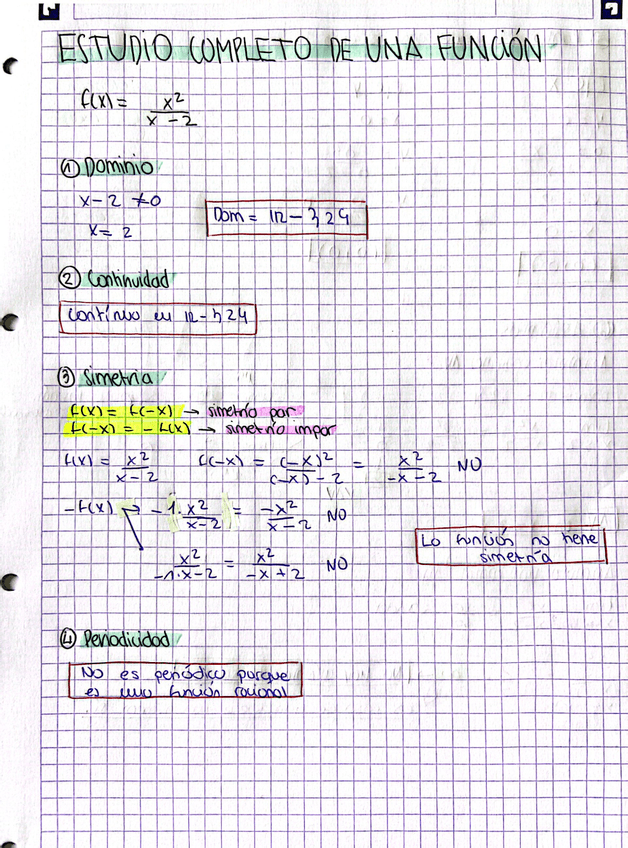 ESTUDIO COMPLETO DE UNA FUNCIÓN
f(x) = x² / x - 2
① Dominio
x - 2 ≠ 0
x = 2
Dom = ℝ - {2}
② Continuidad
Contínuo en ℝ - {2}
③ Simetria
f(x) = f(-x) → simetría par
f(-x) = - f(x) → simetría impar
f(x) = x² / x - 2 f(-x) = (-x)² / (-x) - 2 = x² / -x - 2 NO
-f(x) → -1 · x² / x - 2 = -x² / x - 2 NO
x² / -1·x - 2 = x² / -x + 2 NO
La función no tiene
simetría
④ Periodicidad
No es periódico porque
es una función racional